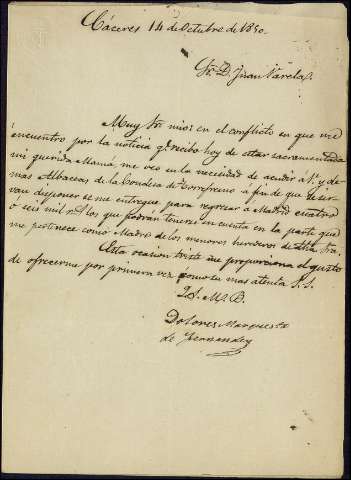 Cáceres 14 de Octubre de 1850.
Sr. D. Juan Varela.
Muy Sr. mio: en el conflicto en que me
encuentro por la noticia q.e recibo hoy de estar sacramentada
mi querida Mamá, me veo en la necesidad de acudir á V. y de-
mas Albaceas de la Condesa de Torrefresno á fin de que se sir-
van disponer se me entregue para regresar á Madrid cuatro
ó seis mil r.s los que podran tener en cuenta en la parte que
me pertenece como Madre de los menores herederos de dha. Sra.
Esta ocasion triste me proporciona el gusto
de ofrecerme por primera vez como su mas atenta S. S.
Q. S. M. B.
Dolores Marquesta
de Fernandez